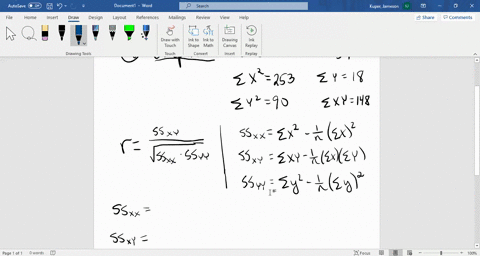 AutoSave Off Document1 - Word Search Kuper, Jameson
File Home Insert Draw Design Layout References Mailings Review View Help Share Comments
Draw with Touch Ink to Shape Ink to Math Drawing Canvas Ink Replay
Drawing Tools Touch Convert Insert Replay
ΣX² = 253 ΣY = 18
ΣY² = 90 ΣXY = 148
r = SSxy / √(SSxx · SSyy)
SSxx = ΣX² - 1/n (ΣX)²
SSxy = ΣXY - 1/n (ΣX)(ΣY)
SSyy = Σy² - 1/n (Σy)²
SSxx =
SSxy =
Page 1 of 1 0 words 100%